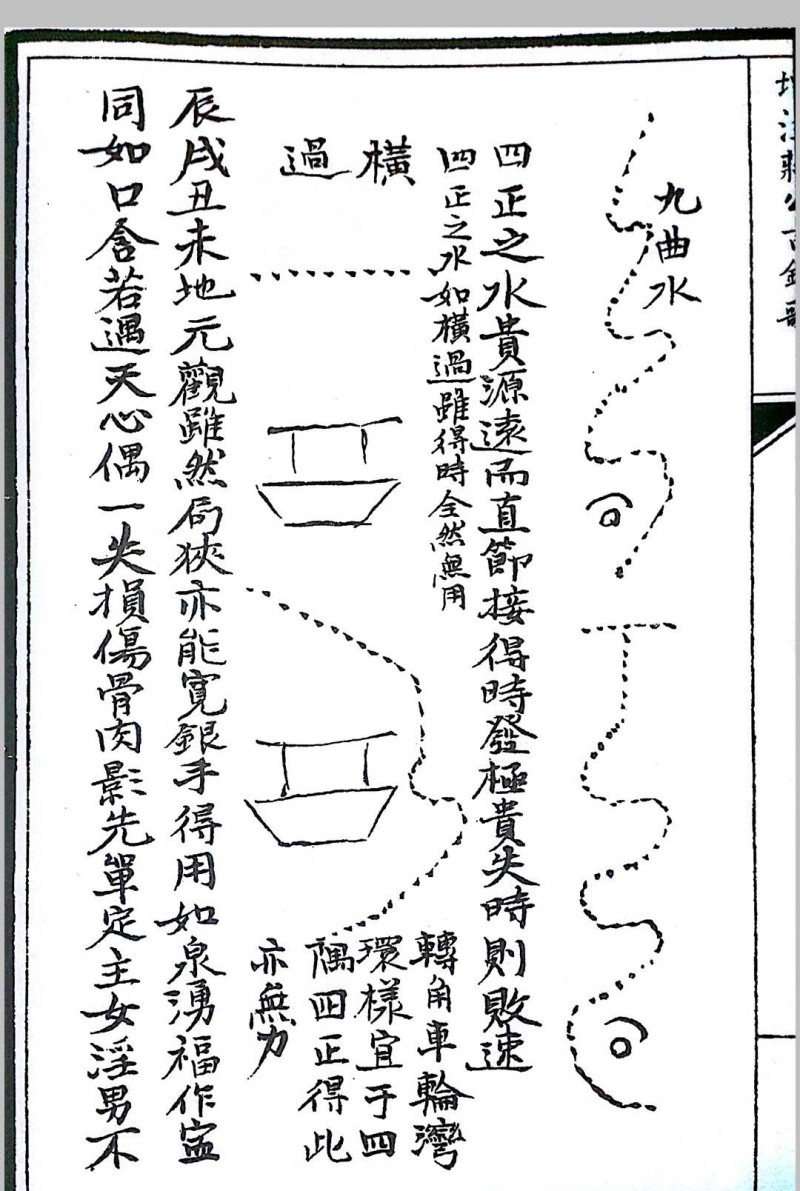 九曲水
四正之水貴源遠而直節接得時發極貴失時則敗速
四正之水如橫過雖得時全然無用
橫過
轉角車輪灣
環樣宜于四
隅四正得此
亦無力
辰戌丑未地元觀雖然局狹亦能寬銀手得用如泉湧福作
同如口含若遇天心偶一失損傷骨肉影先單定主女淫男不